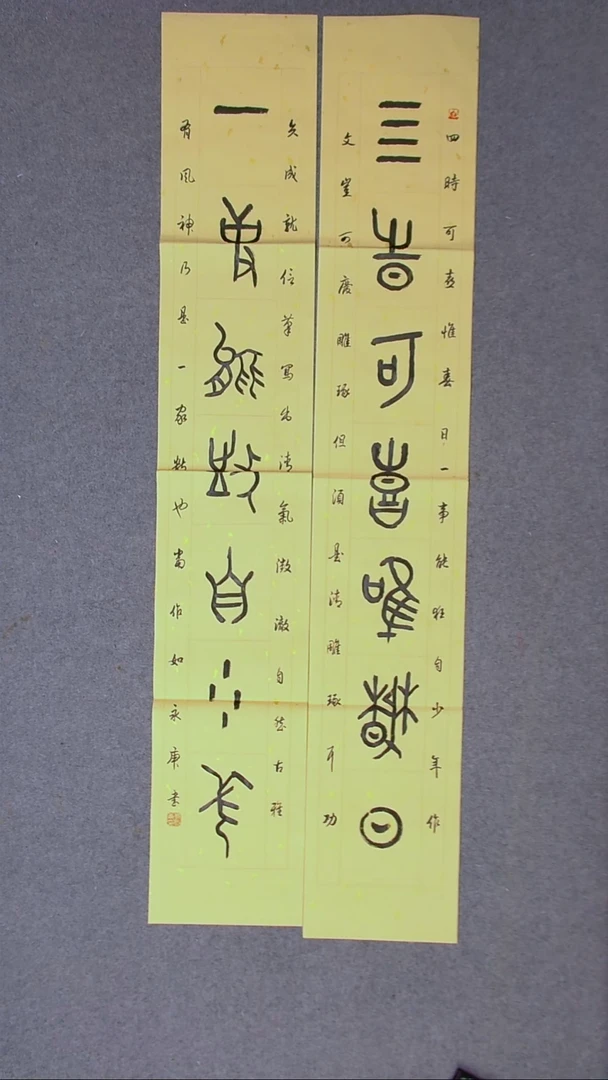 四時可喜惟春日一事能狂自少年作
三時可喜唯春日
文豈可廢雕琢但須是清雕琢耳功
夫成就信筆寫出清氣澂澈自然古雅
一能自少年
有風神乃是一家數也當作如永庚書